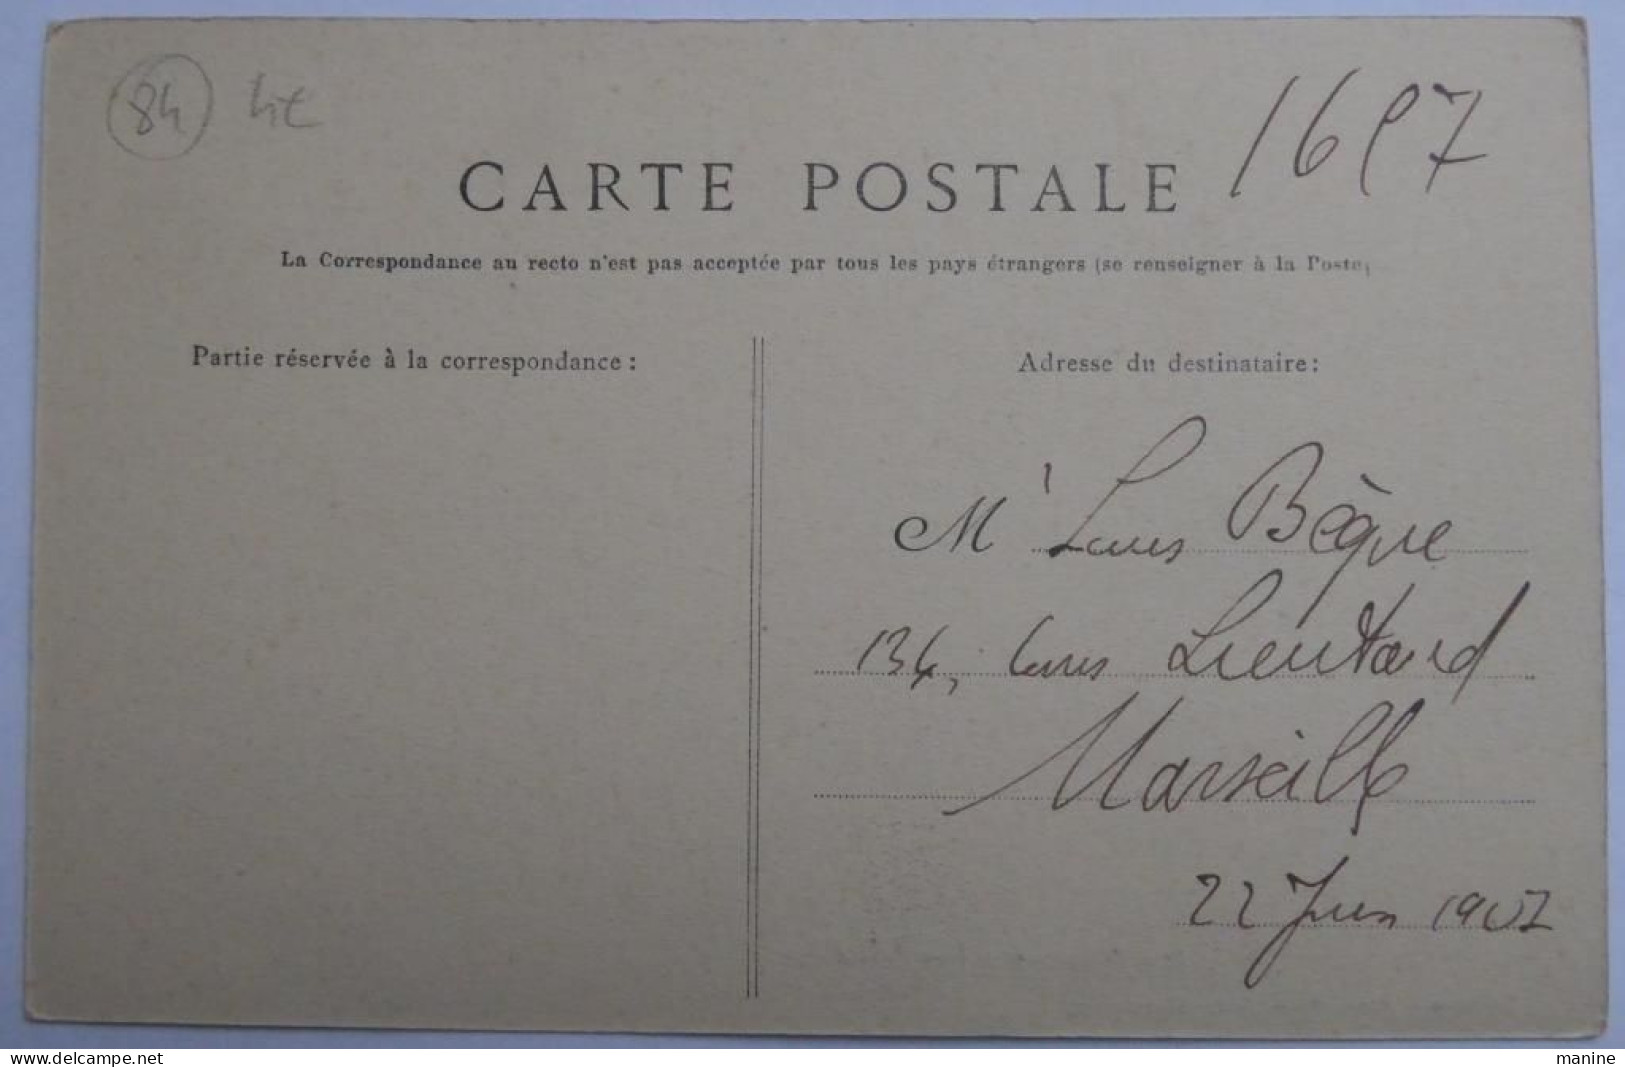 84 4€
1697
CARTE POSTALE
La Correspondance au recto n'est pas acceptée par tous les pays étrangers (se renseigner à la Poste)
Partie réservée à la correspondance :
Adresse du destinataire :
Mr Louis Bèque
134, Cours Lieutaud
Marseille
22 Juin 1907
www.delcampe.net
manine